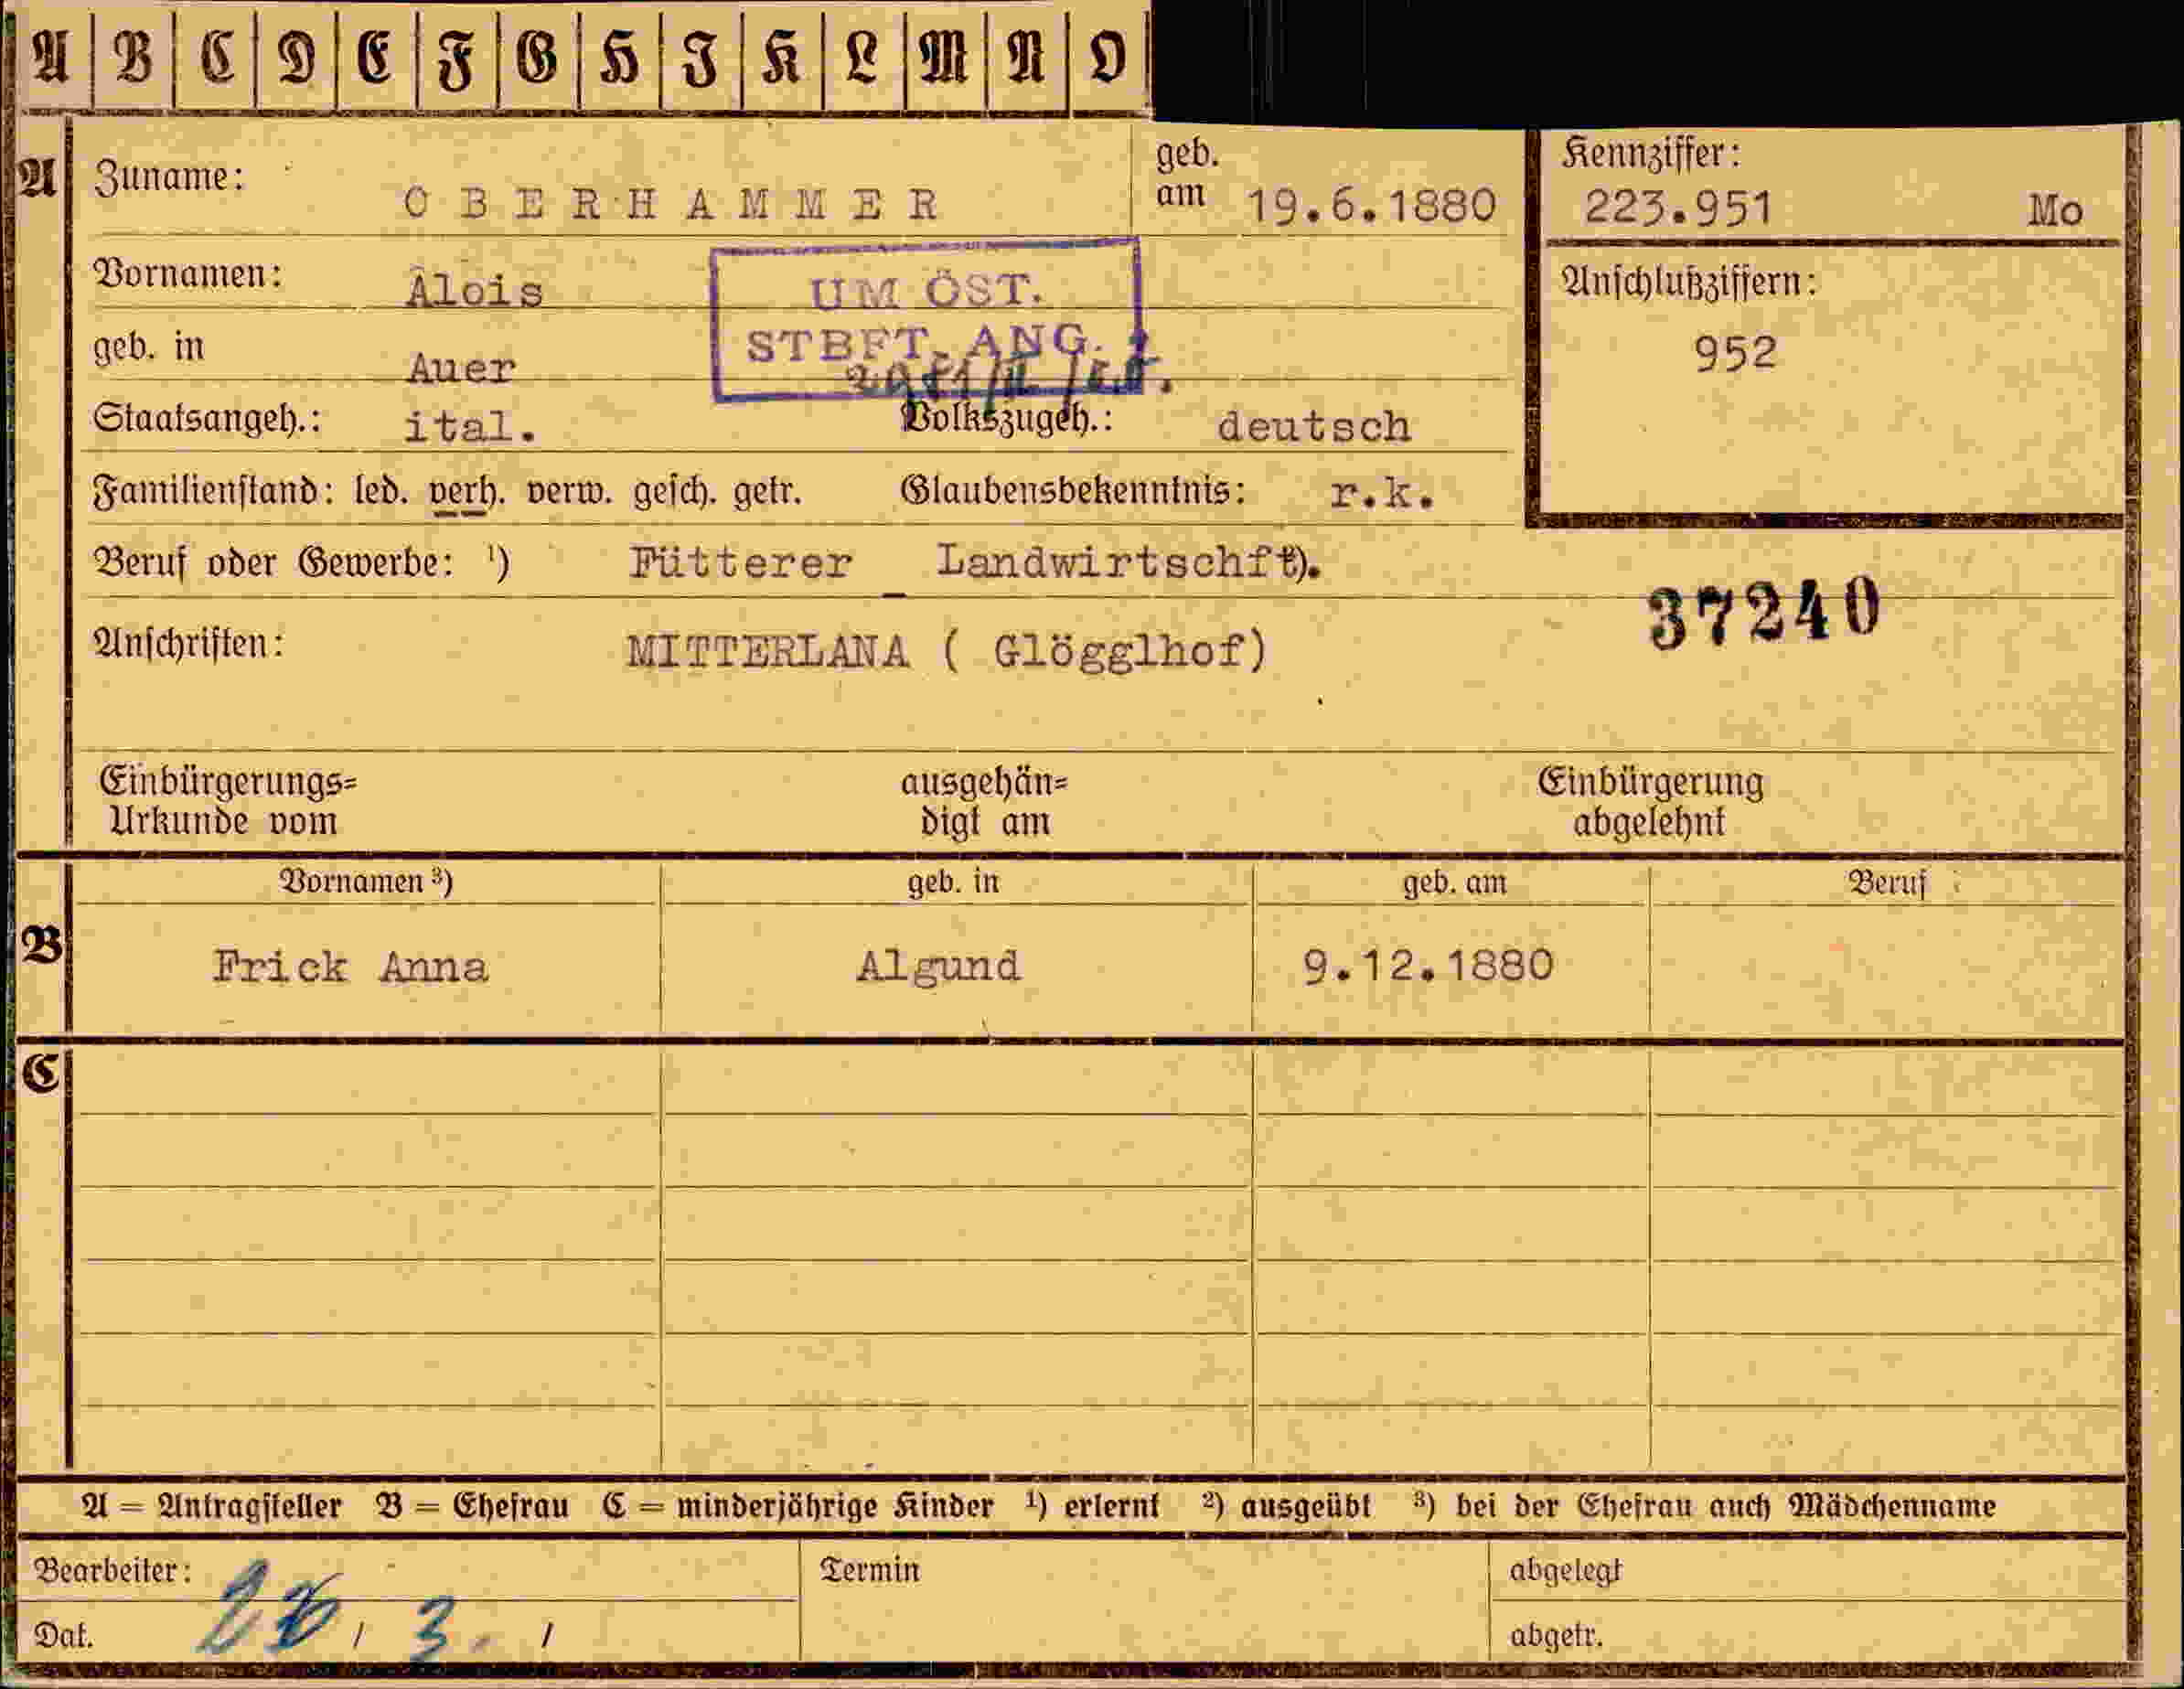 A B C D E F G H I K L M N O
A Zuname: OBERHAMMER geb. am 19.6.1880 Kennziffer: 223.951 Mo
Vornamen: Alois UM ÖST. Anschlußziffern:
geb. in Auer STBFT. ANG. 952
Staatsangeh.: ital. Volkszugeh.: deutsch
Familienstand: led. verh. verw. gesch. getr. Glaubensbekenntnis: r.k.
Beruf oder Gewerbe: ¹) Fütterer Landwirtschft).
37240
Anschriften: MITTERLANA ( Glögglhof)
Einbürgerungs= ausgehän= Einbürgerung
Urkunde vom digt am abgelehnt
Vornamen ³) geb. in geb. am Beruf
B Frick Anna Algund 9.12.1880
C
A = Antragsteller B = Ehefrau C = minderjährige Kinder ¹) erlernt ²) ausgeübt ³) bei der Ehefrau auch Mädchenname
Bearbeiter: Termin abgelegt
Dat. / 3. / abgetr.